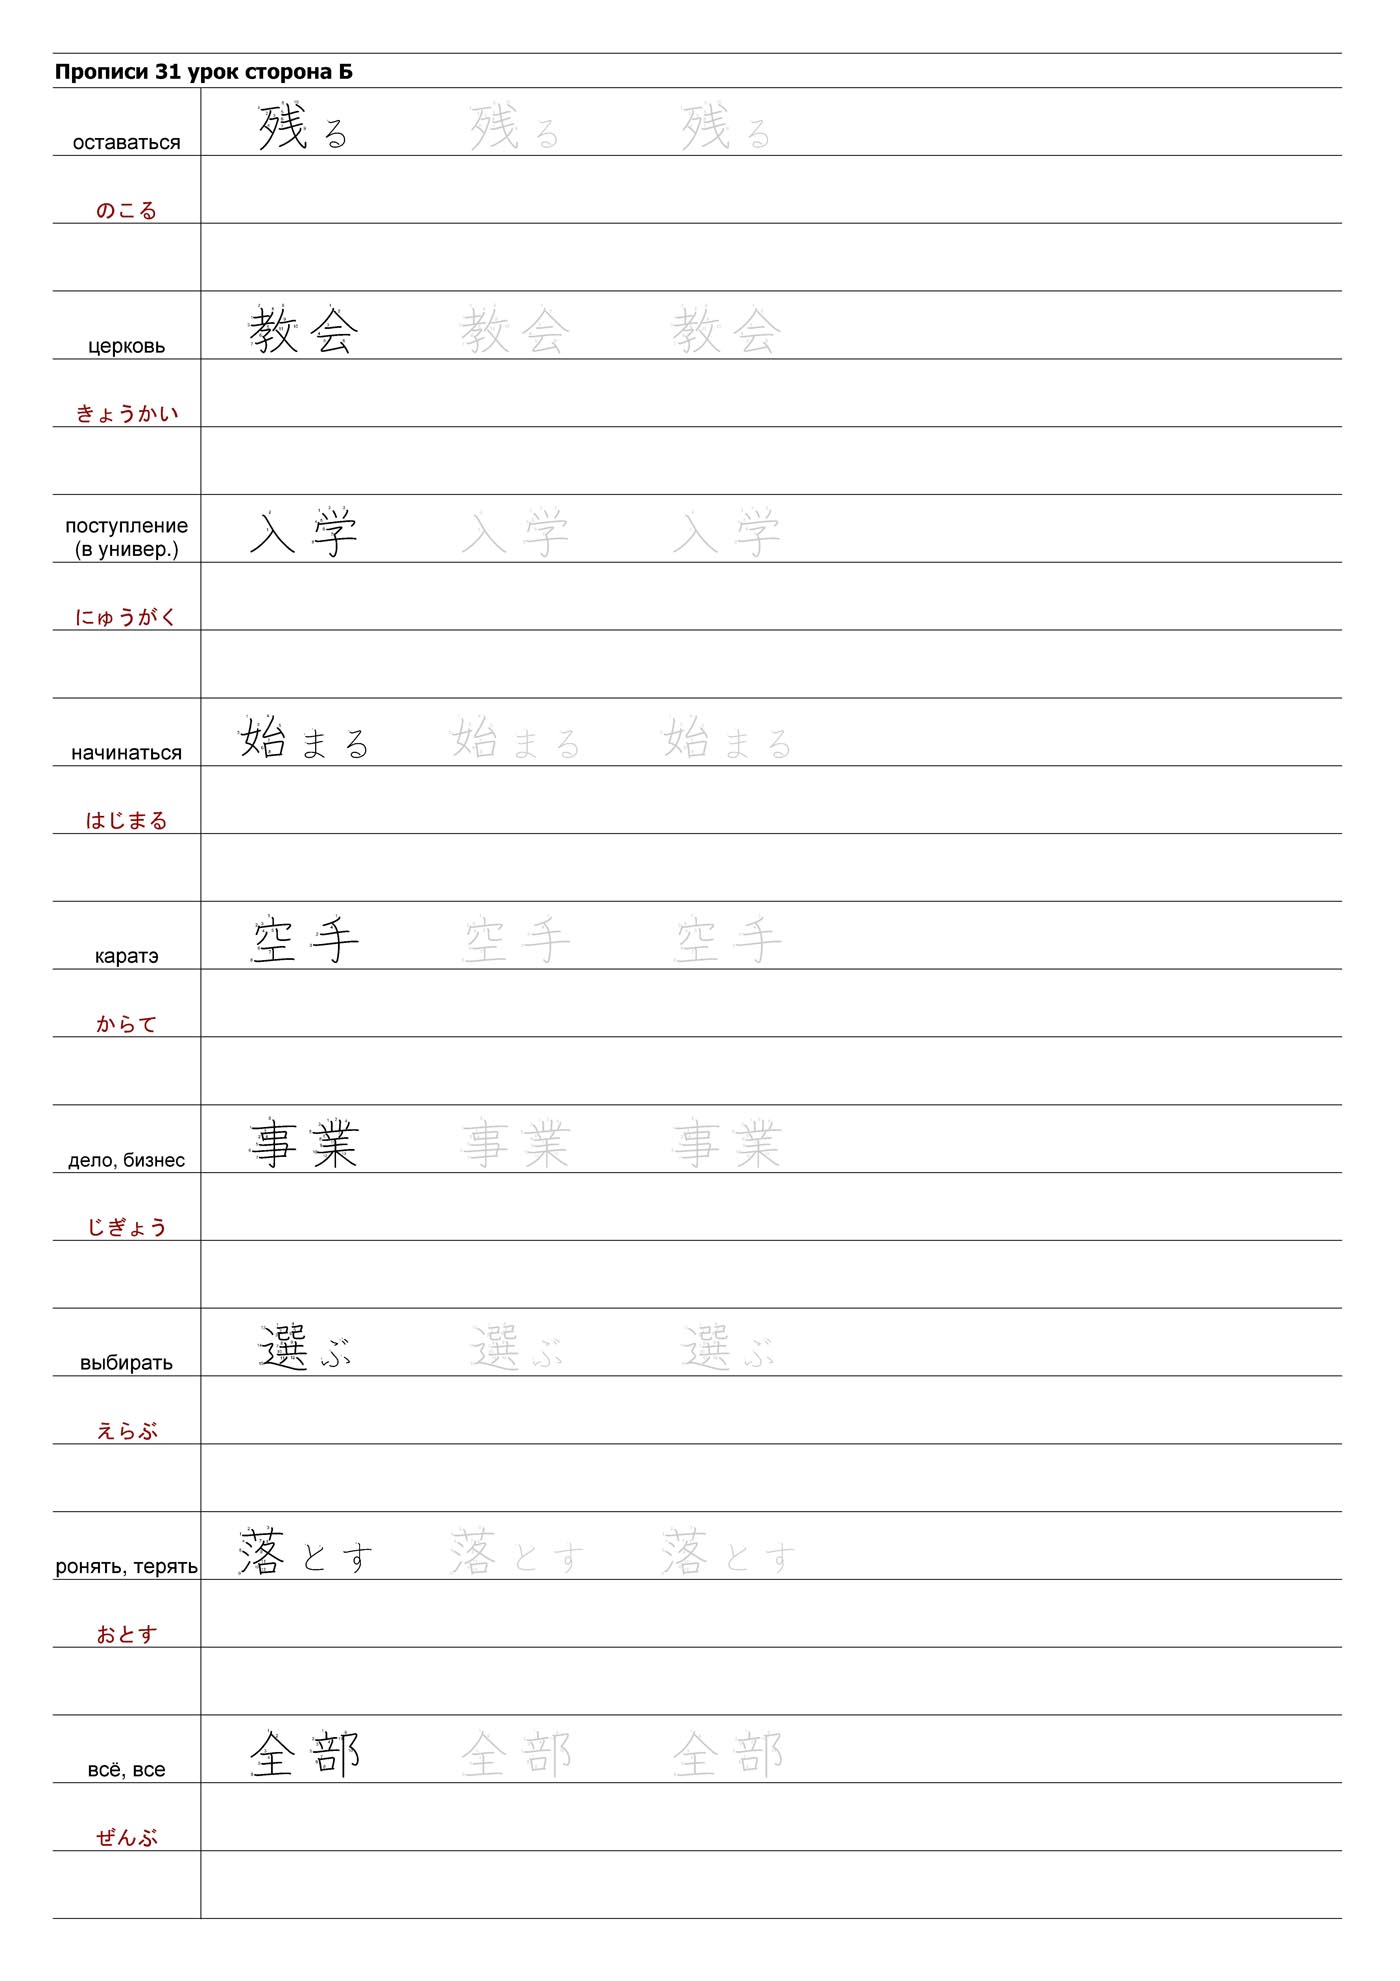 Прописи 31 урок сторона Б
оставаться 残る 残る 残る
のこる
церковь 教会 教会 教会
きょうかい
поступление
(в универ.) 入学 入学 入学
にゅうがく
начинаться 始まる 始まる 始まる
はじまる
каратэ 空手 空手 空手
からて
дело, бизнес 事業 事業 事業
じぎょう
выбирать 選ぶ 選ぶ 選ぶ
えらぶ
ронять, терять 落とす 落とす 落とす
おとす
всё, все 全部 全部 全部
ぜんぶ